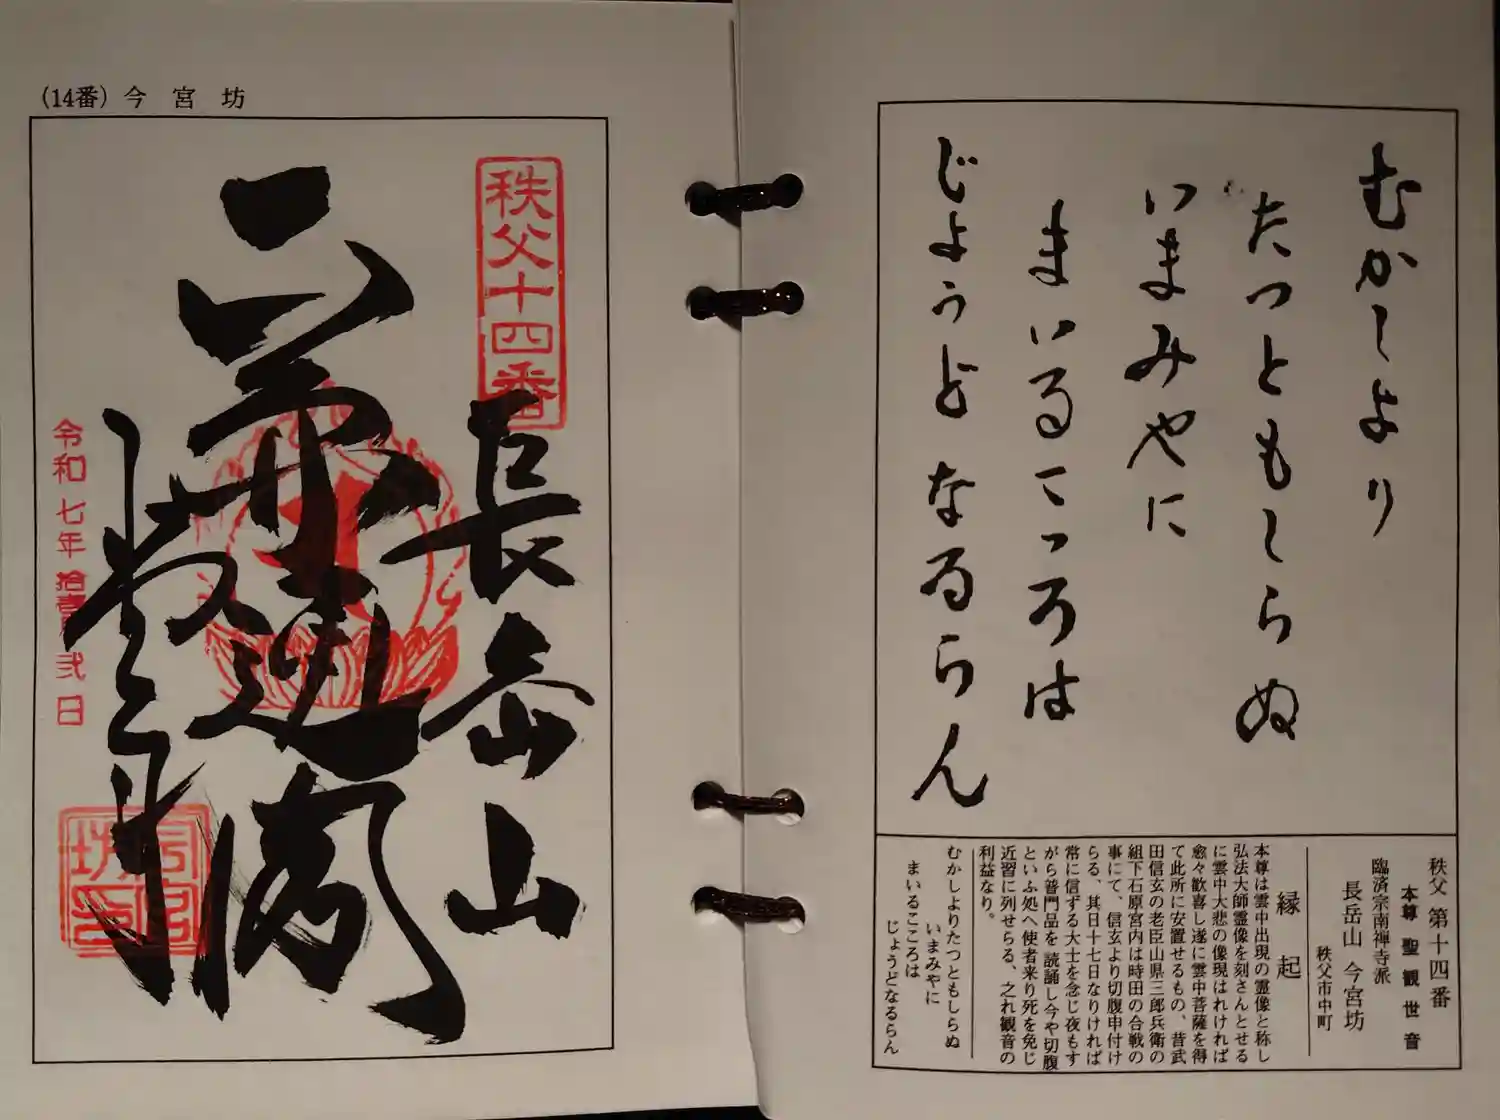 (14番) 今宮坊
秩父十四番
長岳山
令和七年拾壹月弐日
むかしより
たつともしらぬ
いまみやに
まいるこころは
じょうどなるらん
秩父 第十四番
本尊 聖観世音
臨済宗南禅寺派
長岳山 今宮坊
秩父市中町
縁起
本尊は雲中出現の霊像と称し
弘法大師霊像を刻さんとせる
に雲中大悲の像現はれければ
愈々歓喜し遂に雲中菩薩を得
て此所に安置せるもの、昔武
田信玄の老臣山県三郎兵衛の
組下石原宮内は時田の合戦の
事にて、信玄より切腹申付け
らる、其日十七日なりければ
常に信ずる大士を念じ夜もす
がら普門品を読誦し今や切腹
といふ処へ使者来り死を免じ
近習に列せらる、之れ観音の
利益なり。
むかしよりたつともしらぬ
いまみやに
まいるこころは
じょうどなるらん